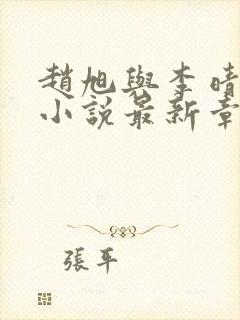 趙旭與李晴
小說最新章
張平